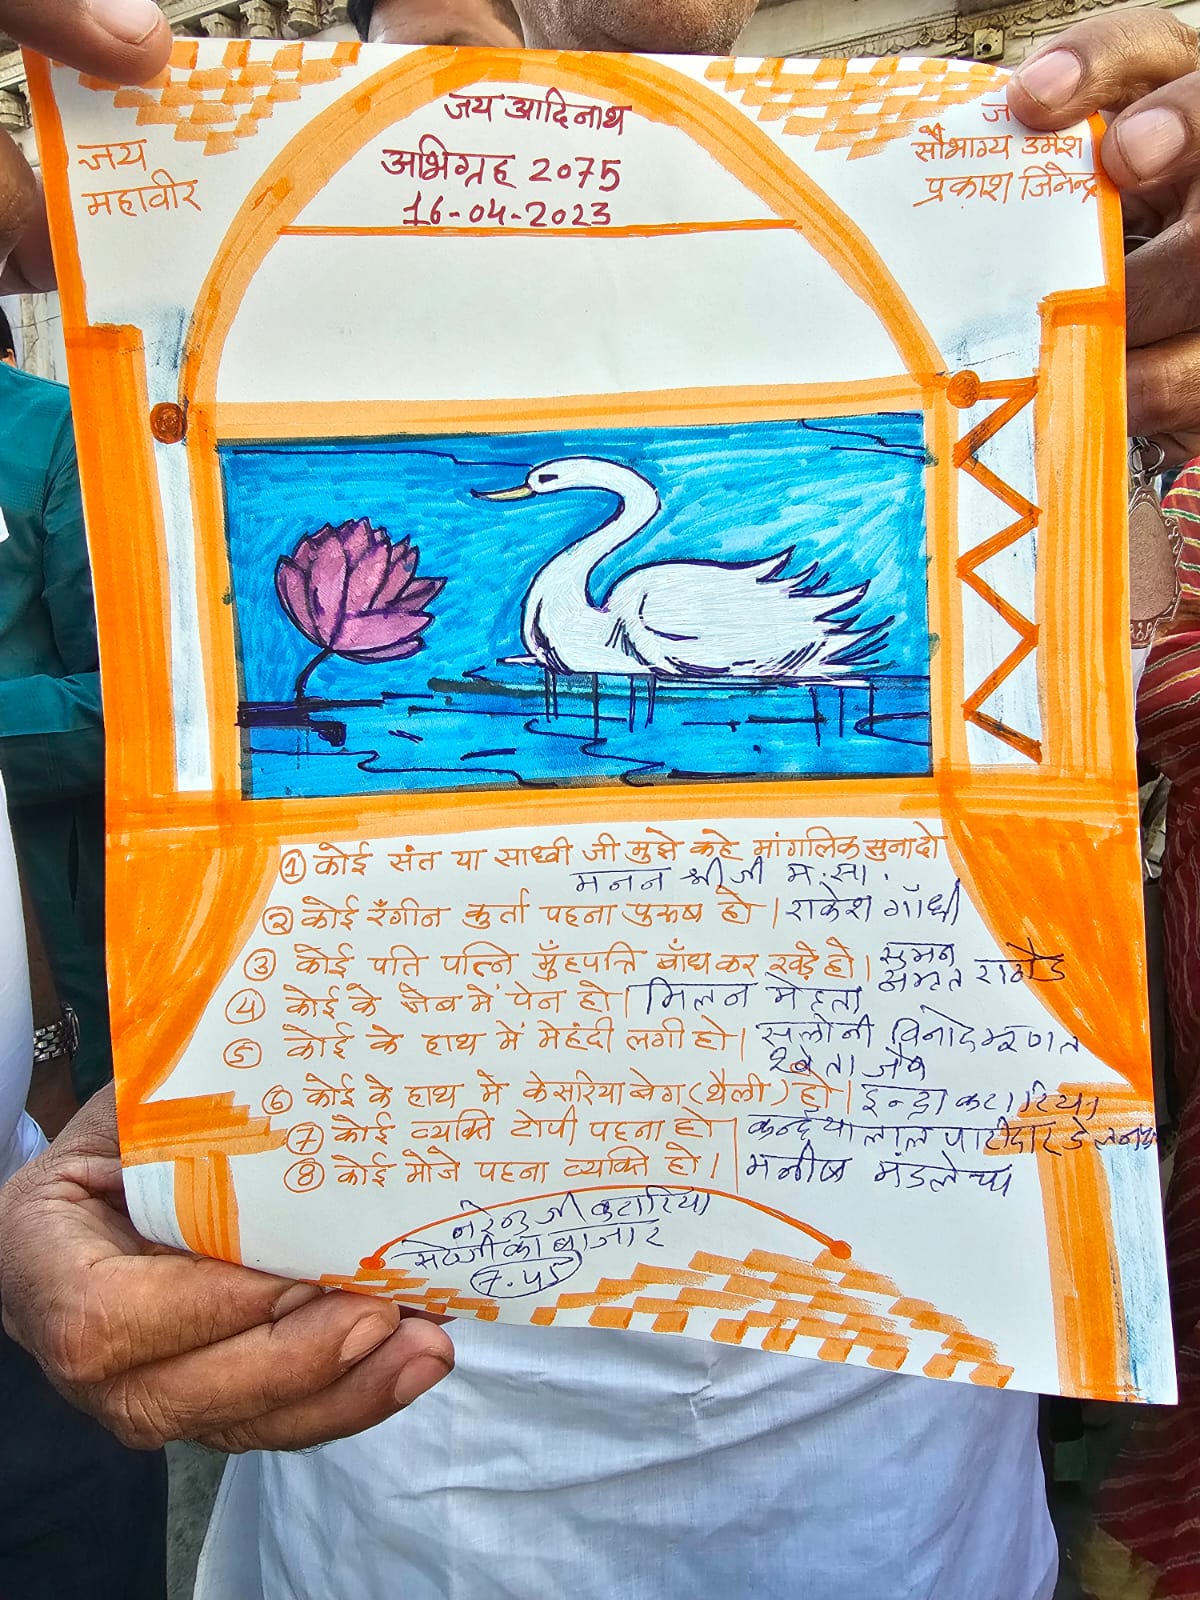 जय आदिनाथ
अभिग्रह 2075
16-04-2023
जय
महावीर
सौभाग्य उमेश
प्रकाश जिनेन्द्र
① कोई संत या साध्वी जी मुझे कहे मांगलिक सुनादो
मनन श्री जी म.सा.
② कोई रँगीन कुर्ता पहना पुरूष हो। राकेश गाँधी
③ कोई पति पत्नि मुँहपत्ति बाँधकर खड़े हो। सुमन
अमृत राठौड़
④ कोई के जेब में पेन हो। मिलन मेहता
⑤ कोई के हाथ में मेहंदी लगी हो। सलोनी विनोद मूणत
श्वेता जैन
⑥ कोई के हाथ मे केसरिया बेग (थैली) हो। इन्द्रा कटारिया
⑦ कोई व्यक्ति टोपी पहना हो। कन्हैयालाल पाटीदार
⑧ कोई मोजे पहना व्यक्ति हो। मनीष मंडलेचा
नरेन्द्र जी कटारिया
बाजार
7.45